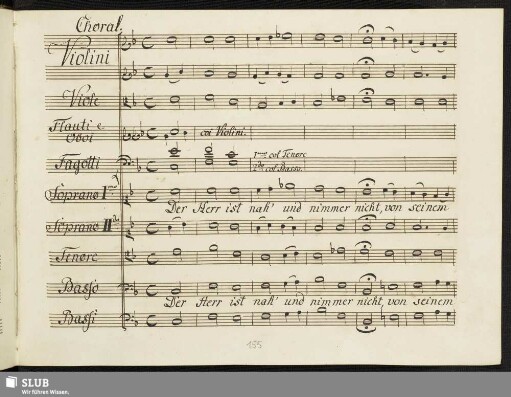 Choral.
Violini
Viole
Flauti e
Oboi
coi Violini.
Fagotti
1mo col Tenore
2do col Basso.
Soprano Imo
Der Herr ist nah' und nimmer nicht, von seinem
Soprano IIdo
Tenore
Basso
Der Herr ist nah' und nimmer nicht, von seinem
Bassi
135
SLUB
Wir führen Wissen.